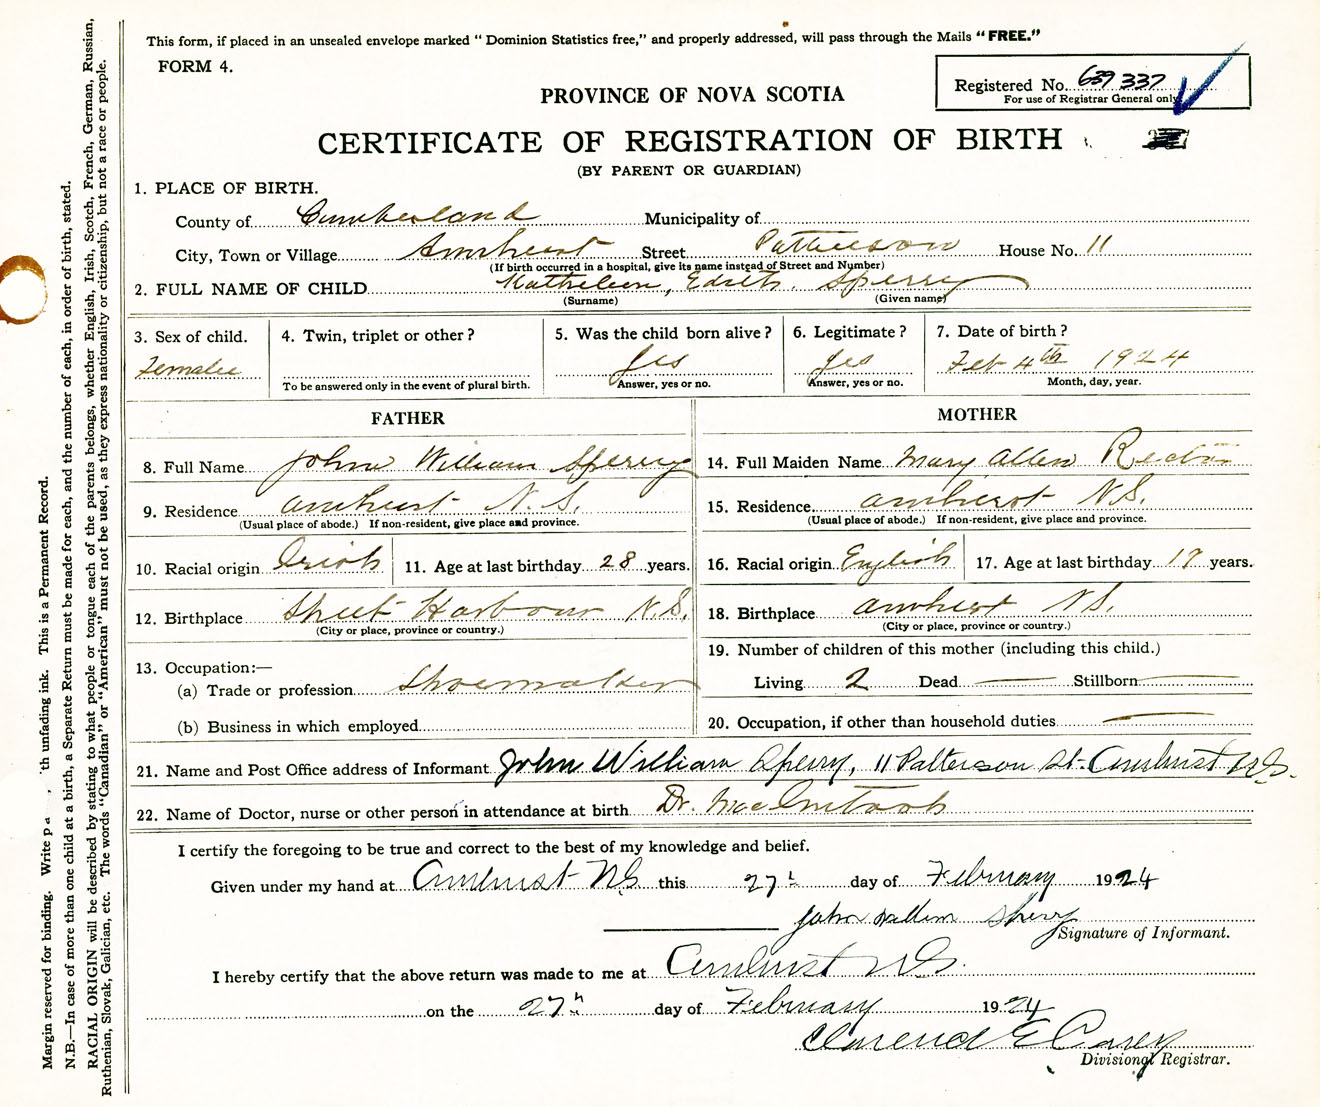 This form, if placed in an unsealed envelope marked " Dominion Statistics free," and properly addressed, will pass through the Mails "FREE."
FORM 4.
Registered No. 639 337
For use of Registrar General only
PROVINCE OF NOVA SCOTIA
CERTIFICATE OF REGISTRATION OF BIRTH
(BY PARENT OR GUARDIAN)
1. PLACE OF BIRTH.
County of Cumberland Municipality of
City, Town or Village Amherst Street Patterson House No. 11
(If birth occurred in a hospital, give its name instead of Street and Number)
2. FULL NAME OF CHILD Kathleen, Edith Sperry
(Surname) (Given name)
3. Sex of child. 4. Twin, triplet or other? 5. Was the child born alive? 6. Legitimate? 7. Date of birth?
Female Yes Yes Feb 4th 1924
To be answered only in the event of plural birth. Answer, yes or no. Answer, yes or no. Month, day, year.
FATHER MOTHER
8. Full Name John William Sperry 14. Full Maiden Name Mary Allen Rector
9. Residence Amherst N.S. 15. Residence Amherst N.S.
(Usual place of abode.) If non-resident, give place and province. (Usual place of abode.) If non-resident, give place and province.
10. Racial origin Irish 11. Age at last birthday 28 years. 16. Racial origin English 17. Age at last birthday years.
12. Birthplace Sheet Harbour N.S. 18. Birthplace Amherst N.S.
(City or place, province or country.) (City or place, province or country.)
13. Occupation:— 19. Number of children of this mother (including this child.)
(a) Trade or profession Shoemaker Living 2 Dead — Stillborn —
(b) Business in which employed 20. Occupation, if other than household duties —
21. Name and Post Office address of Informant John William Sperry, 11 Patterson St. Amherst N.S.
22. Name of Doctor, nurse or other person in attendance at birth Dr. MacIntosh
I certify the foregoing to be true and correct to the best of my knowledge and belief.
Given under my hand at Amherst N.S. this 27th day of February 1924
John William Sperry
Signature of Informant.
I hereby certify that the above return was made to me at Amherst N.S.
on the 27th day of February 1924
Clarence E Casey
Divisional Registrar.
Margin reserved for binding. Write th unfading ink. This is a Permanent Record.
N.B.—In case of more than one child at a birth, a Separate Return must be made for each, and the number of each, in order of birth, stated.
RACIAL ORIGIN will be described by stating to what people or tongue each of the parents belongs, whether English, Irish, Scotch, French, German, Russian,
Ruthenian, Slovak, Galician, etc. The words "Canadian" or "American" must not be used, as they express nationality or citizenship, but not a race or people.